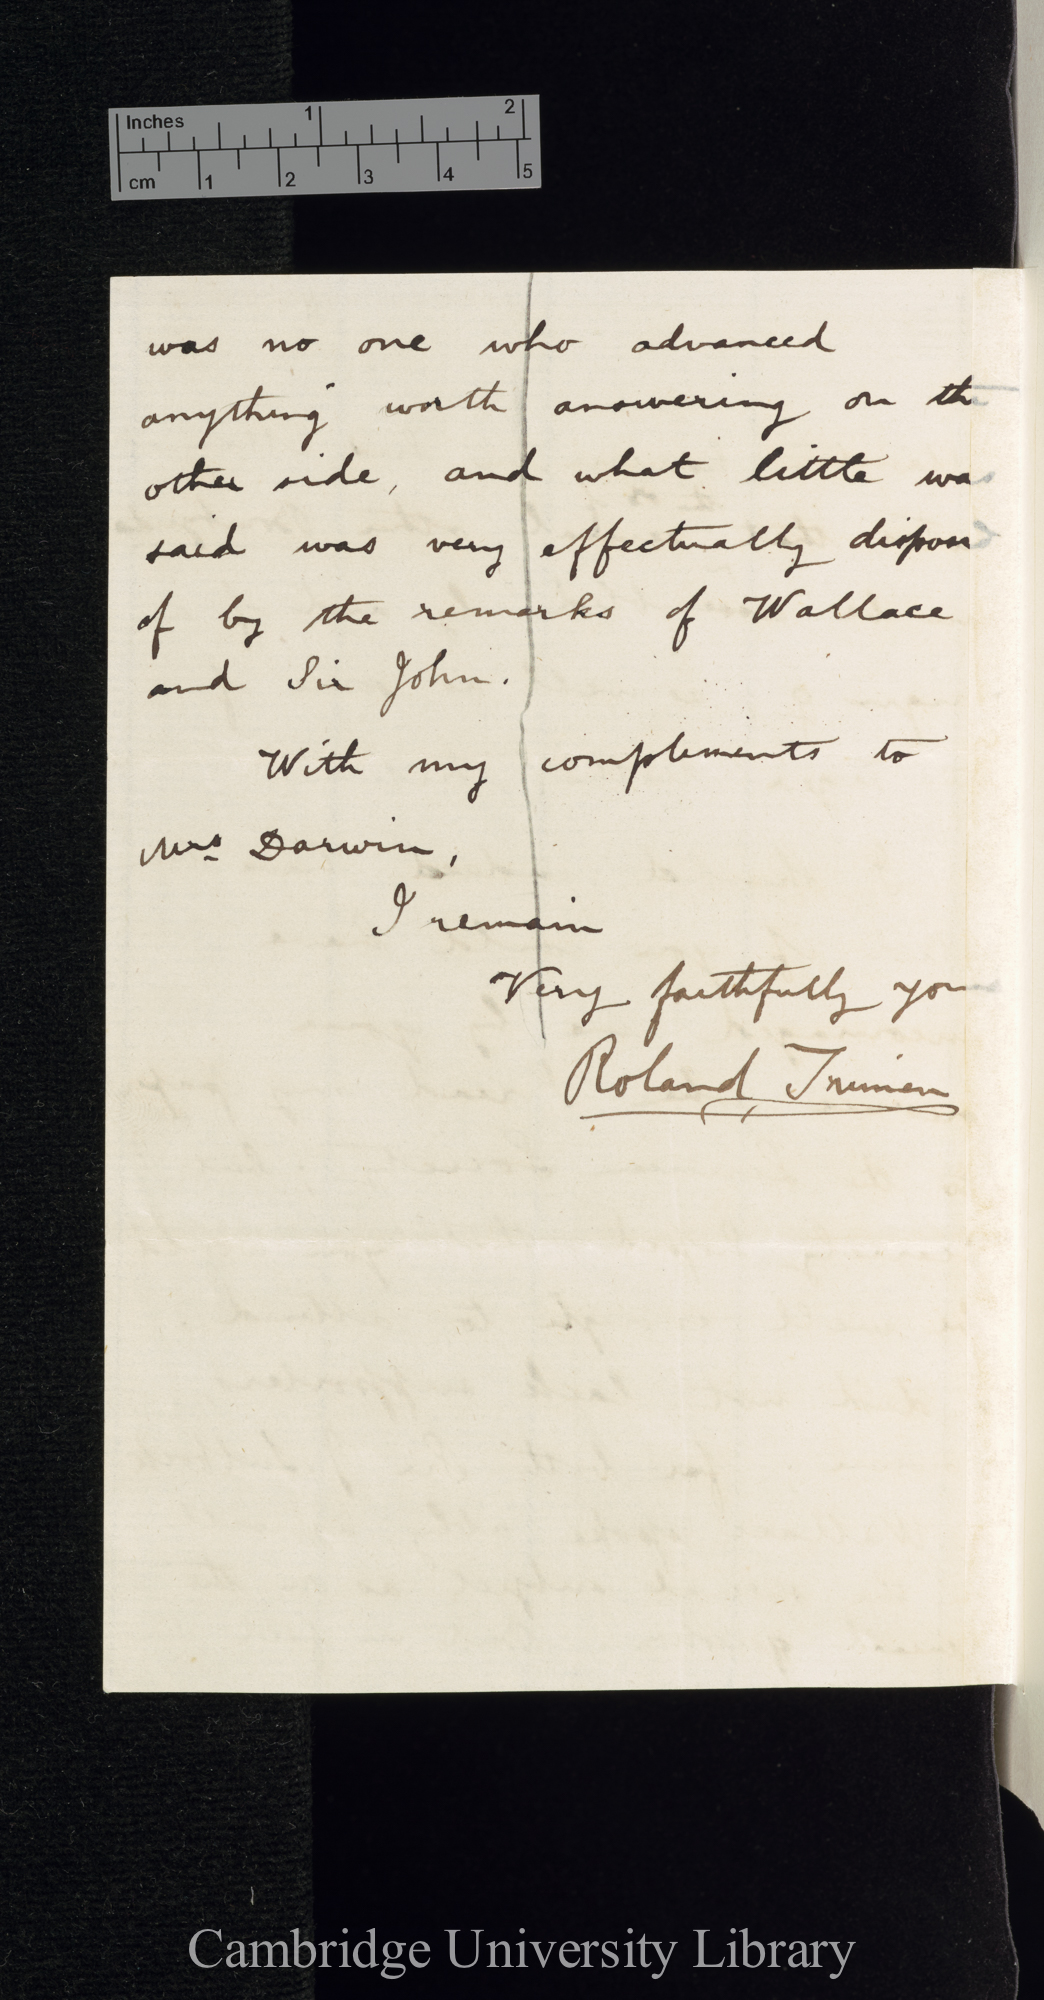 Inches 1 2
cm 1 2 3 4 5
was no one who advanced
anything worth answering on th
other side, and what little was
said was very effectually dispose
of by the remarks of Wallace
and Sir John.
With my compliments to
Mrs Darwin,
I remain
Very faithfully you
Roland Trimen
Cambridge University Library